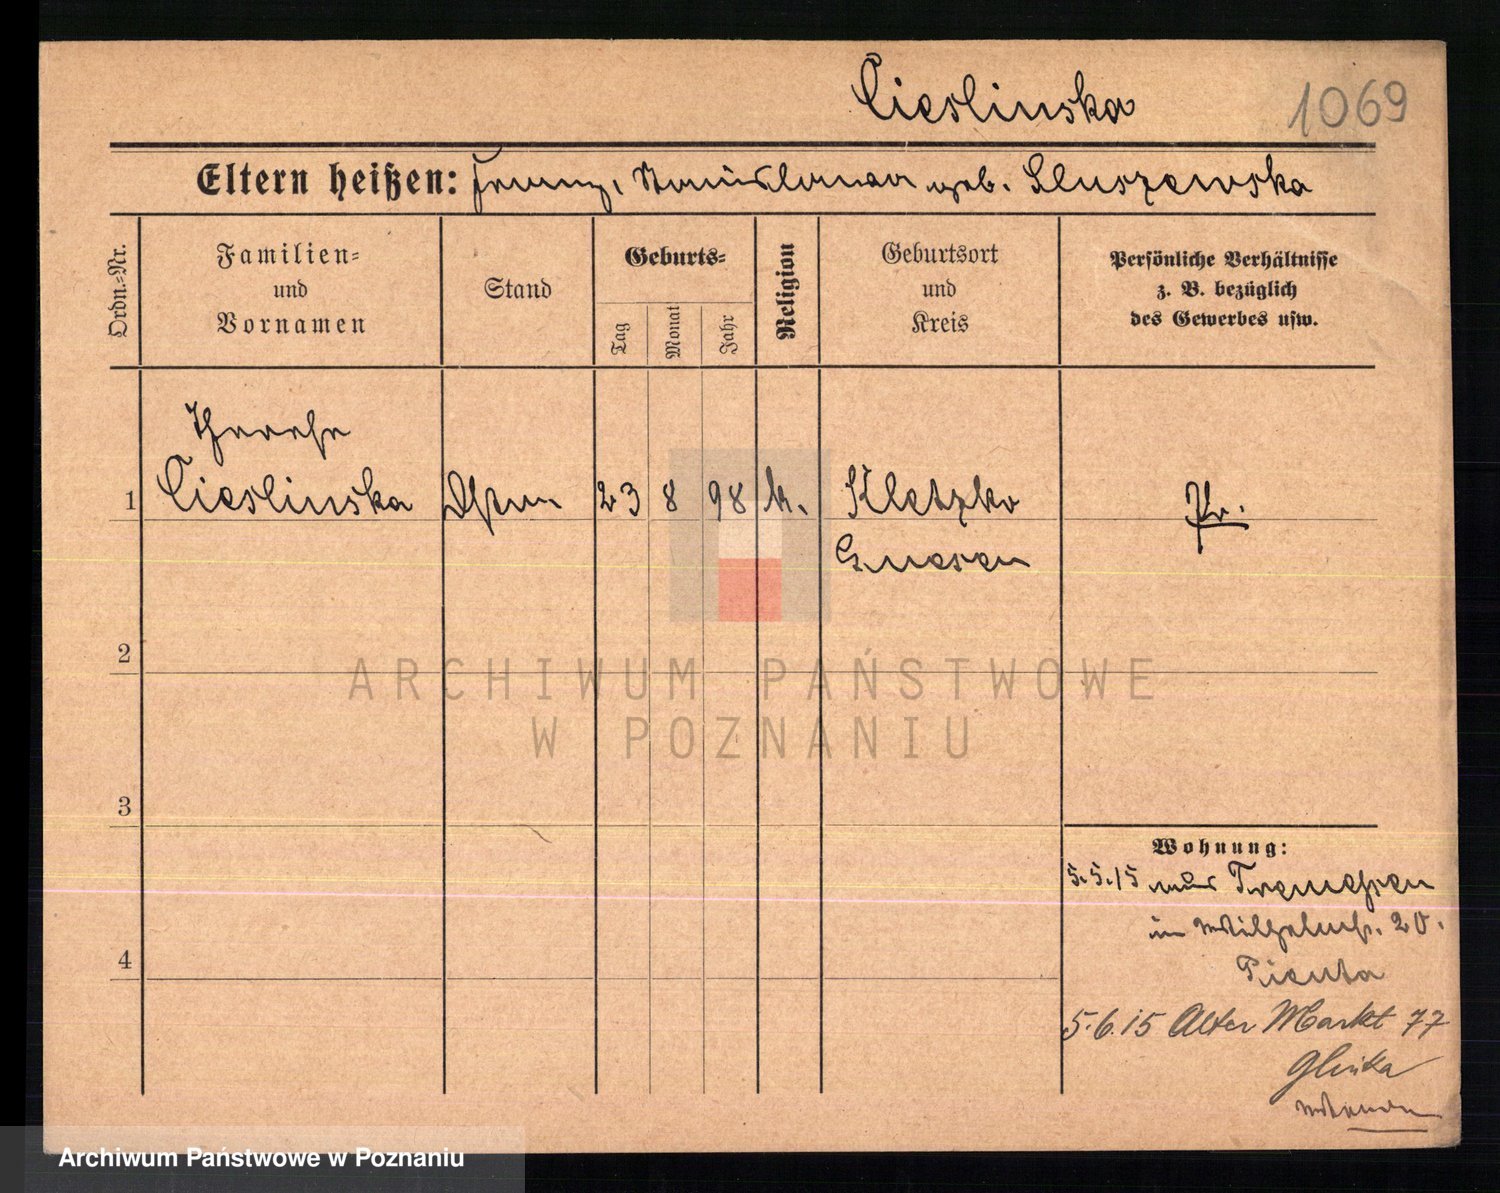 Cieslinska
1069
Eltern heißen: Franz, Stanislawa geb. Sluszewska
Ordn.-Nr.
Familien-
und
Vornamen
Stand
Geburts-
Tag
Monat
Jahr
Religion
Geburtsort
und
Kreis
Persönliche Verhältnisse
z. B. bezüglich
des Gewerbes usw.
Therese
1 Cieslinska 23 8 98 k. Kletzko Pr.
Gnesen
2
ARCHIWUM PAŃSTWOWE
W POZNANIU
3
Wohnung:
5.5.15 aus Tremessen
in Wilhelmst. 20.
Pienta
4
5.6.15 Alter Markt 77
Glinka
Archiwum Państwowe w Poznaniu